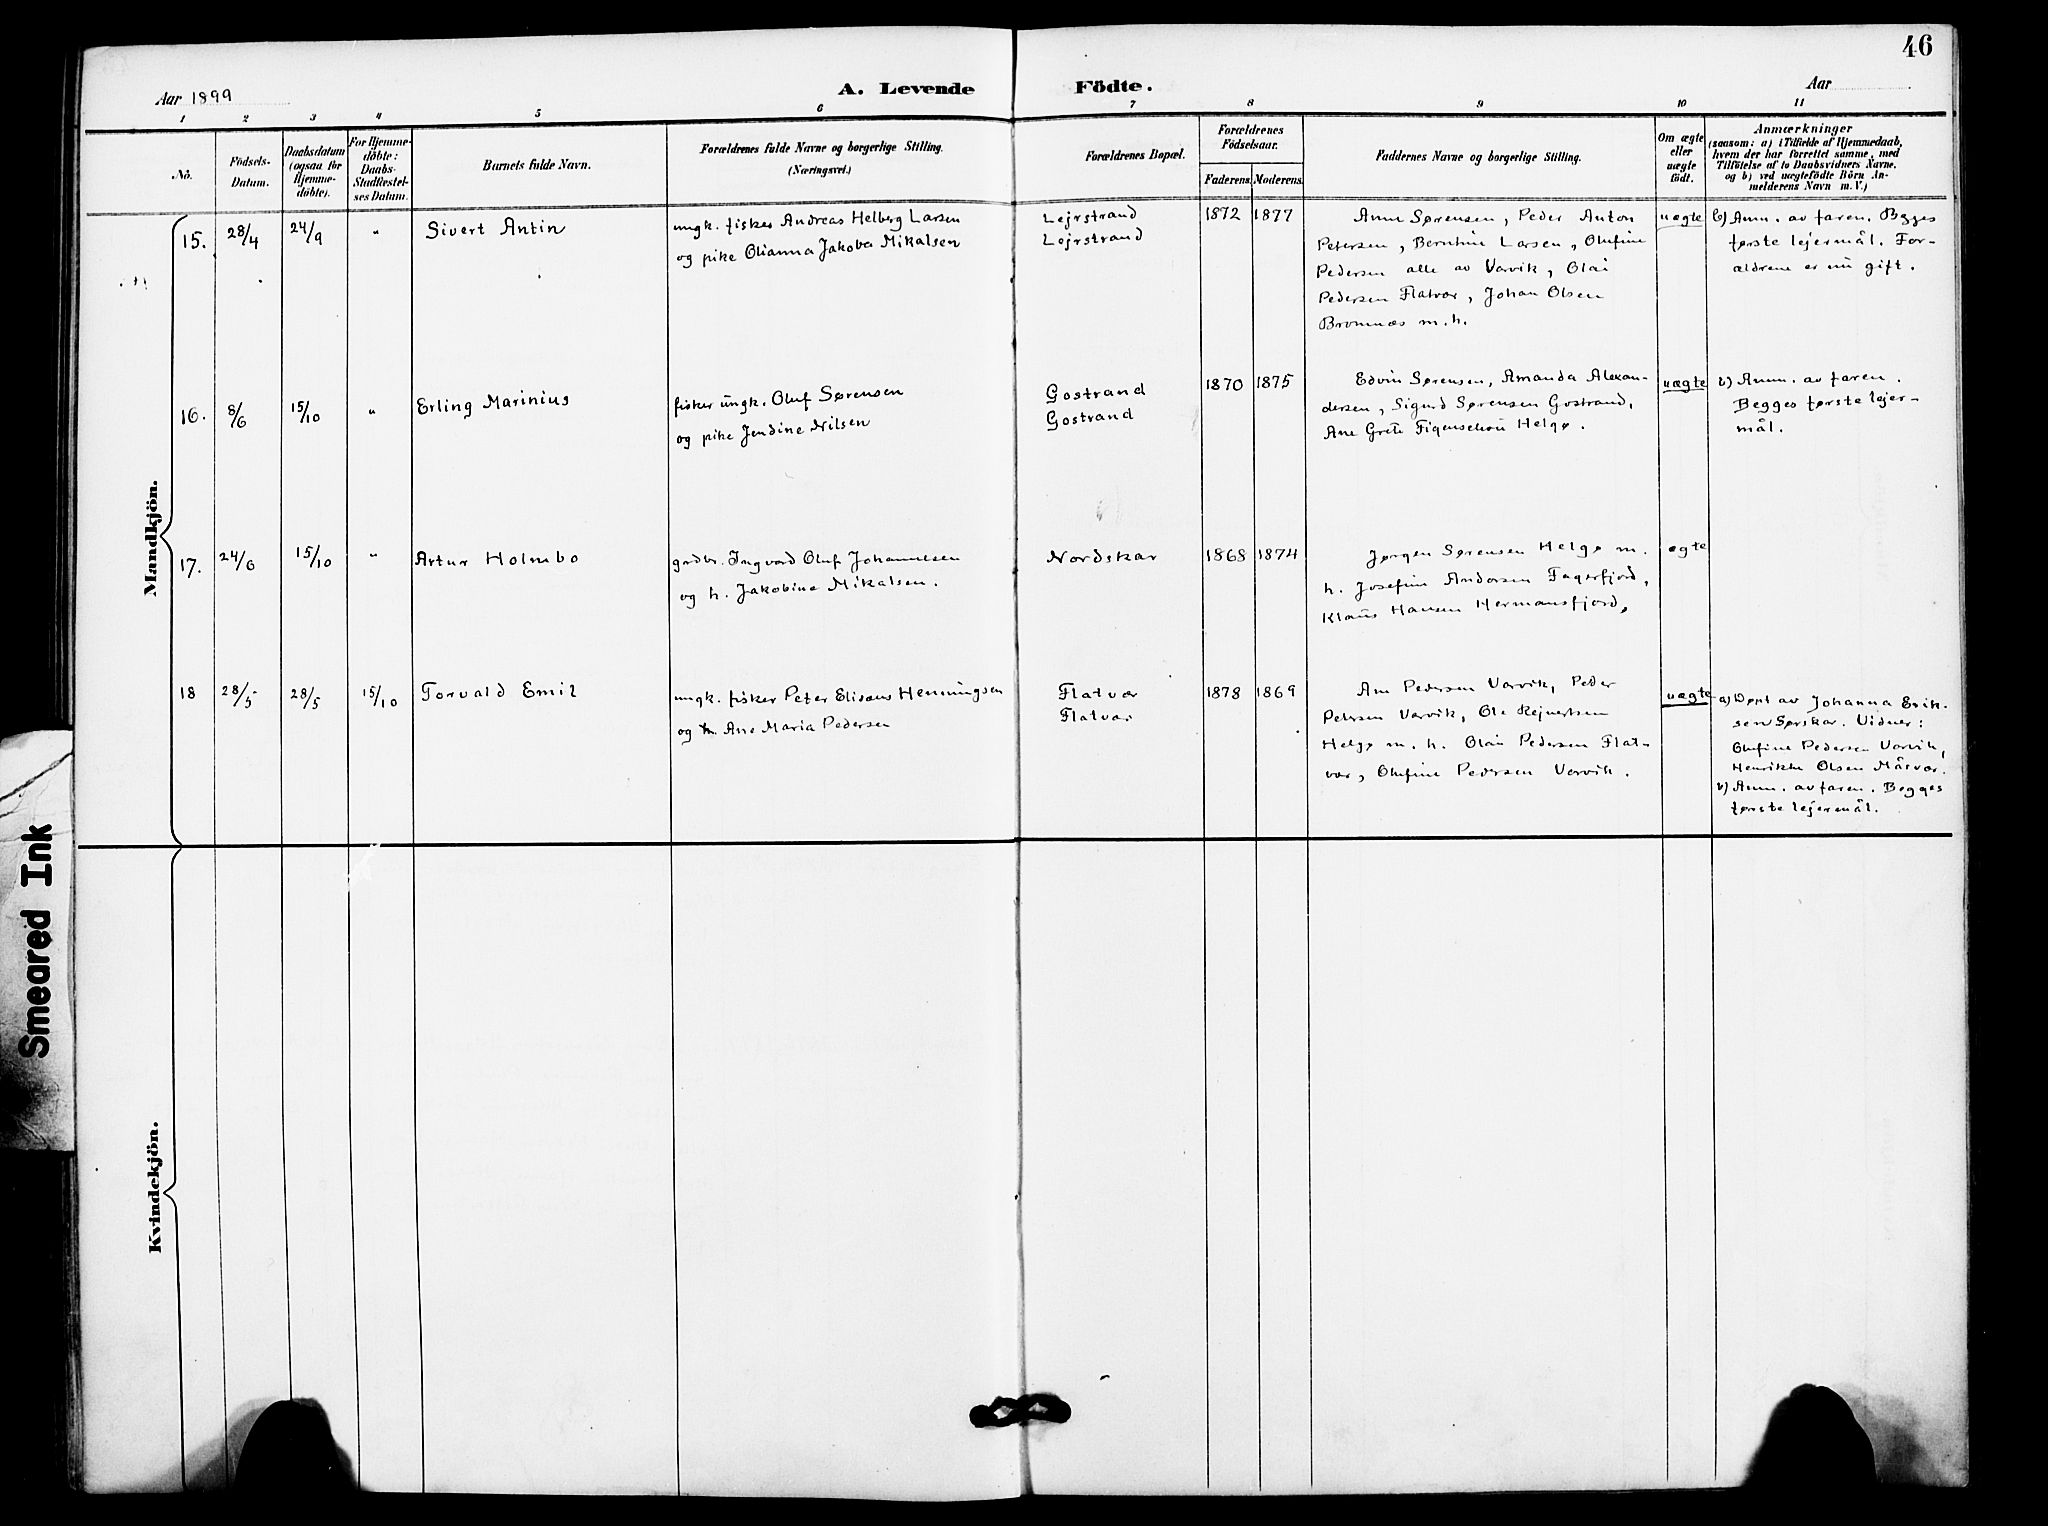 46
Aar 1899
A. Levende Födte.
Aar
1 2 3 4 5 6 7 8 9 10 11
No.
Födsels-
Datum.
Daabsdatum
(ogsaa for
Hjemme-
döbte).
For Hjemme-
döbte:
Daabs-
Stadfæstel-
ses Datum.
Barnets fulde Navn.
Forældrenes fulde Navne og borgerlige Stilling.
(Næringsvei.)
Forældrenes Bopæl.
Forældrenes
Födselsaar.
Faderens. Moderens.
Faddernes Navne og borgerlige Stilling.
Om ægte
eller
uægte
födt.
Anmærkninger
(saasom: a) i Tilfælde af Hjemmedaab,
hvem der har forrettet samme, med
Tilföielse af to Daabsvidners Navne,
og b) ved uægtefödte Börn An-
melderens Navn m. V.)
Mandkjön.
15. 28/4 24/9 " Sivert Antin
ungk. fisker Andreas Helberg Larsen
og pike Olianna Jakoba Mikalsen
Lejrstrand
Lejrstrand
1872 1877
Anne Sørensen, Peder Anton
Petersen, Berntine Larsen, Olufine
Pedersen alle av Varvik, Olai
Pedersen Flatvær, Johan Olsen
Bromnæs m. h.
uægte
b) Anm. av faren. Begges
første lejermål. For-
ældrene er nu gift.
16. 8/6 15/10 " Erling Marinius
fisker ungk. Oluf Sørensen
og pike Jendine Nilsen
Gostrand
Gostrand
1870 1875
Edvin Sørensen, Amanda Alexan-
dersen, Sigurd Sørensen Gostrand,
Ane Grete Figenschou Helgø.
uægte
b) Anm. av faren.
Begges første lejer-
mål.
17. 24/6 15/10 " Artur Holmbo
grdbr. Ingvard Oluf Johannesen
og h. Jakobine Mikalsen.
Nordskar
1868 1874
Jørgen Sørensen Helgø m.
h. Josefine Andersen Fagerfjord,
Klaus Hansen Hermansfjord,
ægte
18 28/5 28/5 15/10 Torvald Emil
ungk. fisker Peter Elisæus Henningsen
og h. Ane Maria Pedersen
Flatvær
Flatvær
1878 1869
Ane Pedersen Varvik, Peder
Petersen Varvik, Ole Rejnertsen
Helgø m. h. Olai Pedersen Flat-
vær, Olufine Pedersen Varvik.
uægte
a) Døpt av Johanna Erik-
sen Sørskar. Vidner:
Olufine Pedersen Varvik,
Henrikke Olsen Måsvær.
b) Anm. av faren. Begges
første lejermål.
Kvindekjön.
Smeared Ink